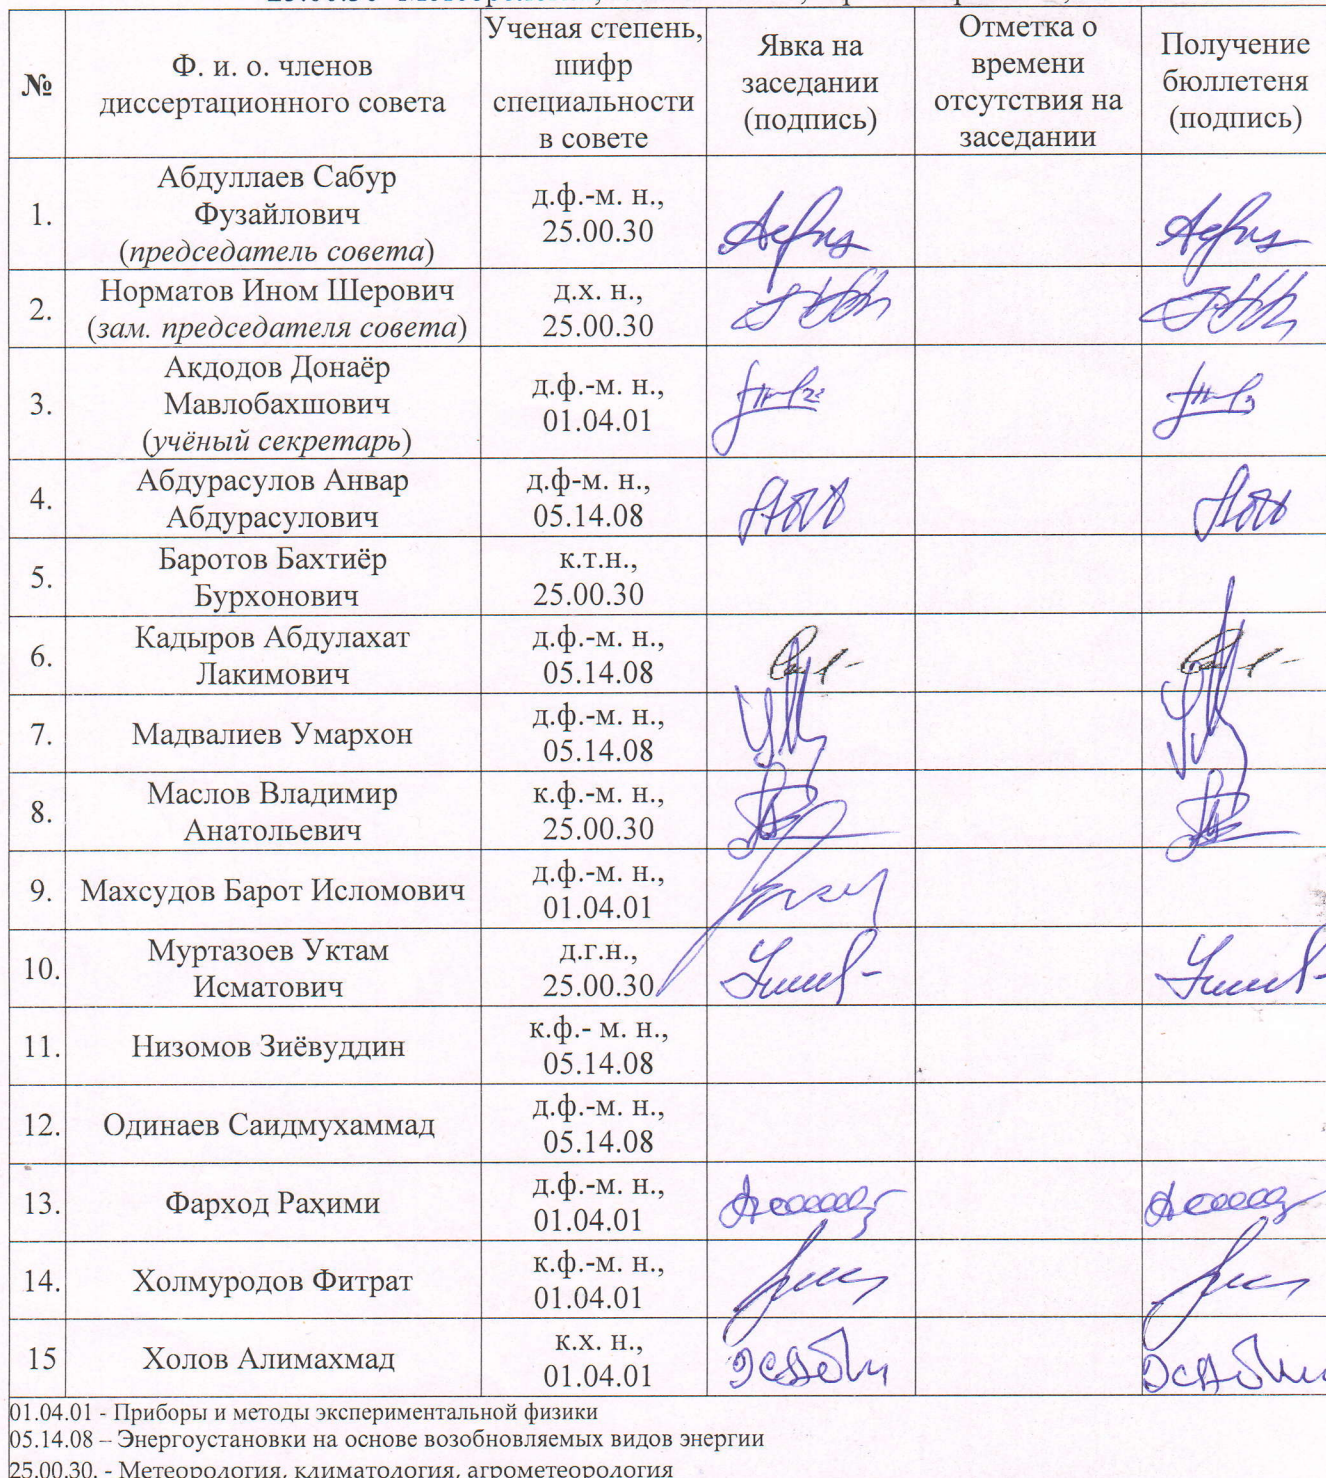 №
Ф. и. о. членов
диссертационного совета
Ученая степень,
шифр
специальности
в совете
Явка на
заседании
(подпись)
Отметка о
времени
отсутствия на
заседании
Получение
бюллетеня
(подпись)
1.
Абдуллаев Сабур
Фузайлович
(председатель совета)
д.ф.-м. н.,
25.00.30
2.
Норматов Ином Шерович
(зам. председателя совета)
д.х. н.,
25.00.30
3.
Акдодов Донаёр
Мавлобахшович
(учёный секретарь)
д.ф.-м. н.,
01.04.01
4.
Абдурасулов Анвар
Абдурасулович
д.ф-м. н.,
05.14.08
5.
Баротов Бахтиёр
Бурхонович
к.т.н.,
25.00.30
6.
Кадыров Абдулахат
Лакимович
д.ф.-м. н.,
05.14.08
7.
Мадвалиев Умархон
д.ф.-м. н.,
05.14.08
8.
Маслов Владимир
Анатольевич
к.ф.-м. н.,
25.00.30
9.
Махсудов Барот Исломович
д.ф.-м. н.,
01.04.01
10.
Муртазоев Уктам
Исматович
д.г.н.,
25.00.30
11.
Низомов Зиёвуддин
к.ф.- м. н.,
05.14.08
12.
Одинаев Саидмухаммад
д.ф.-м. н.,
05.14.08
13.
Фарход Раҳими
д.ф.-м. н.,
01.04.01
14.
Холмуродов Фитрат
к.ф.-м. н.,
01.04.01
15
Холов Алимахмад
к.х. н.,
01.04.01
01.04.01 - Приборы и методы экспериментальной физики
05.14.08 – Энергоустановки на основе возобновляемых видов энергии
25.00.30. - Метеорология, климатология, агрометеорология